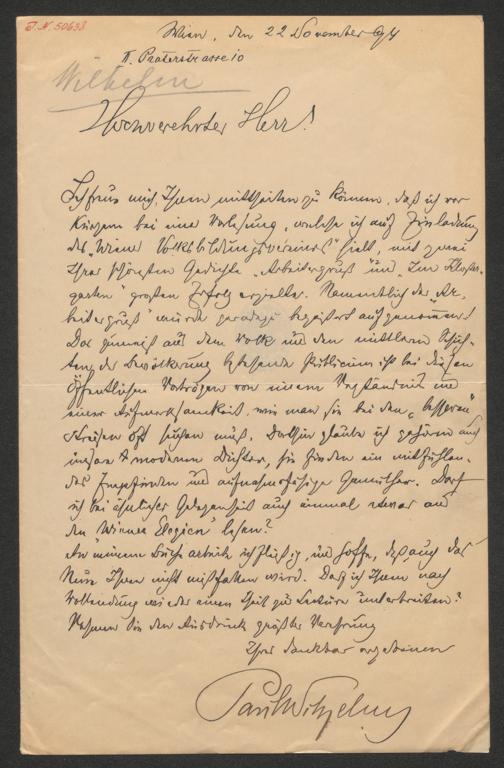 I.N. 50633
Wien, den 22 November 94
II. Praterstrasse 10
Wilhelm
Hochverehrter Herr!
Ich freue mich, Ihnen mittheilen zu können, daß ich vor
Kurzem bei einer Vorlesung, welche ich auf Einladung
des „Wiener Volksbildungsvereines" hielt, mit zwei
Ihrer schönsten Gedichte „Arbeitergruß" und „Im Kloster-
garten" großen Erfolg erzielte. Namentlich der „Ar-
beitergruß" wurde geradezu begeistert aufgenommen!
Das zumeist aus dem Volke und den mittleren Schich-
ten der Bevölkerung bestehende Publicum ist bei diesen
öffentlichen Vorträgen von einem Verständnis und
einer Aufmerksamkeit, wie man sie bei den „besseren"
Kreisen oft suchen muß. Dorthin glaube ich gehören auch
unsere modernen Dichter, sie finden ein mitfühlen-
des Empfinden und aufnahmsfähige Gemüther. Darf
ich bei ähnlicher Gelegenheit auch einmal etwas aus
den „Wiener Elegien" lesen?
An meinem Buche arbeite ich fleißig und hoffe, daß auch das
Neue Ihnen nicht mißfallen wird. Darf ich Ihnen nach
Vollendung wieder einen Theil zur Lecture unterbreiten?
Nehmen Sie den Ausdruck größter Verehrung
Ihres dankbar ergebenen
Paul Wilhelm